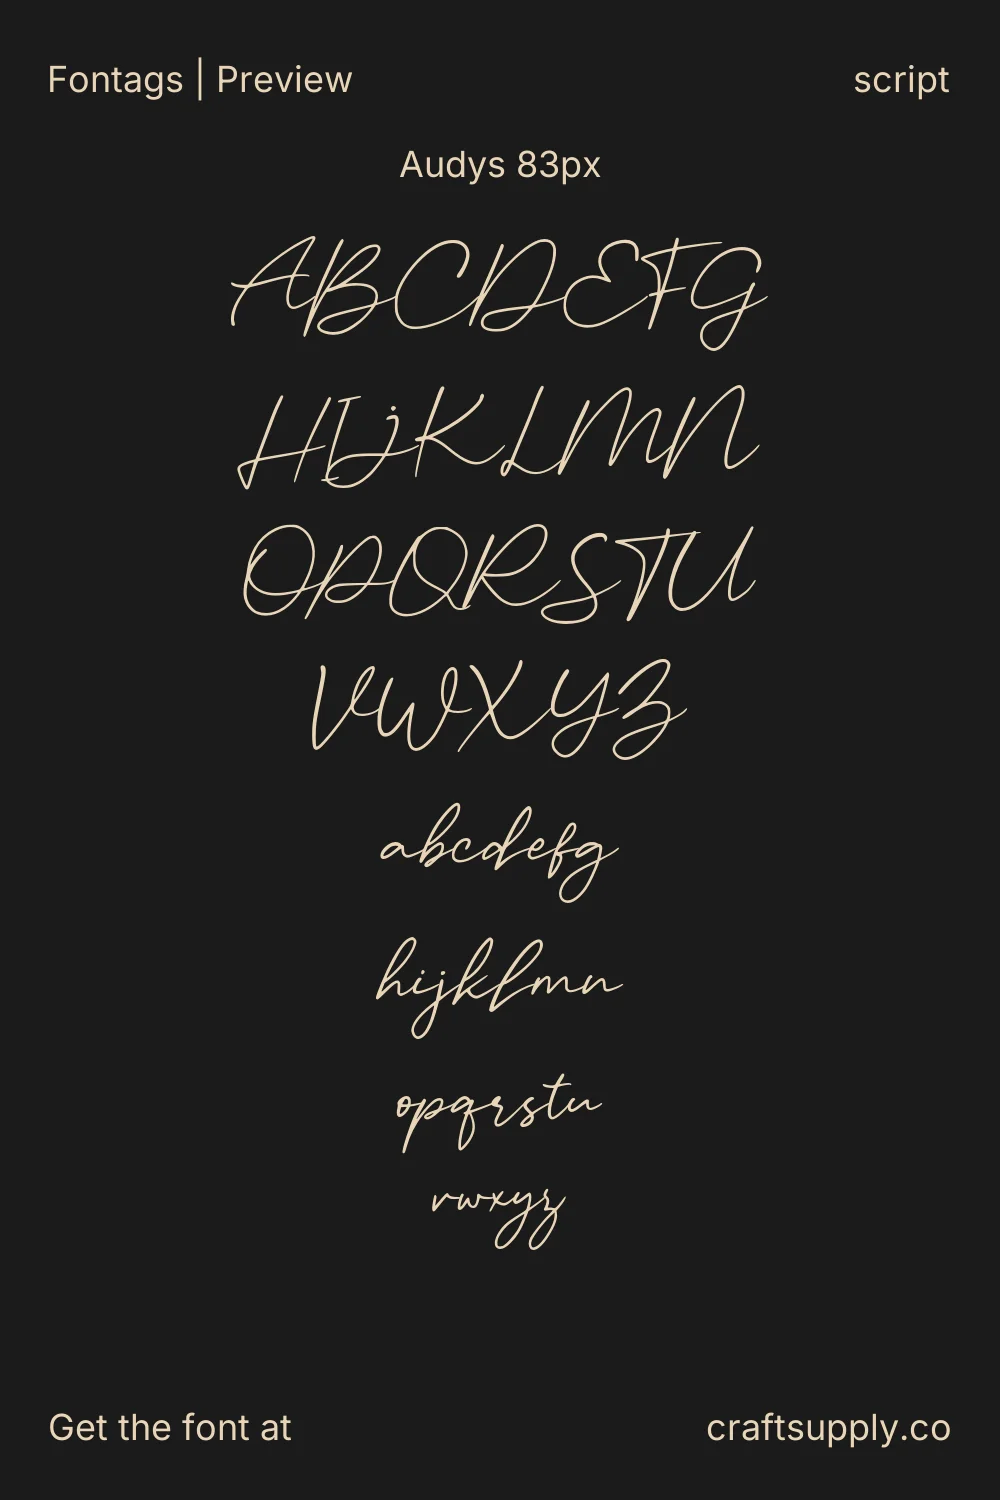 Fontags | Preview
script
Audys 83px
ABCDEFG
HIJKLMN
OPQRSTU
VWXYZ
abcdefg
hijklmn
opqrstu
vwxyz
Get the font at
craftsupply.co